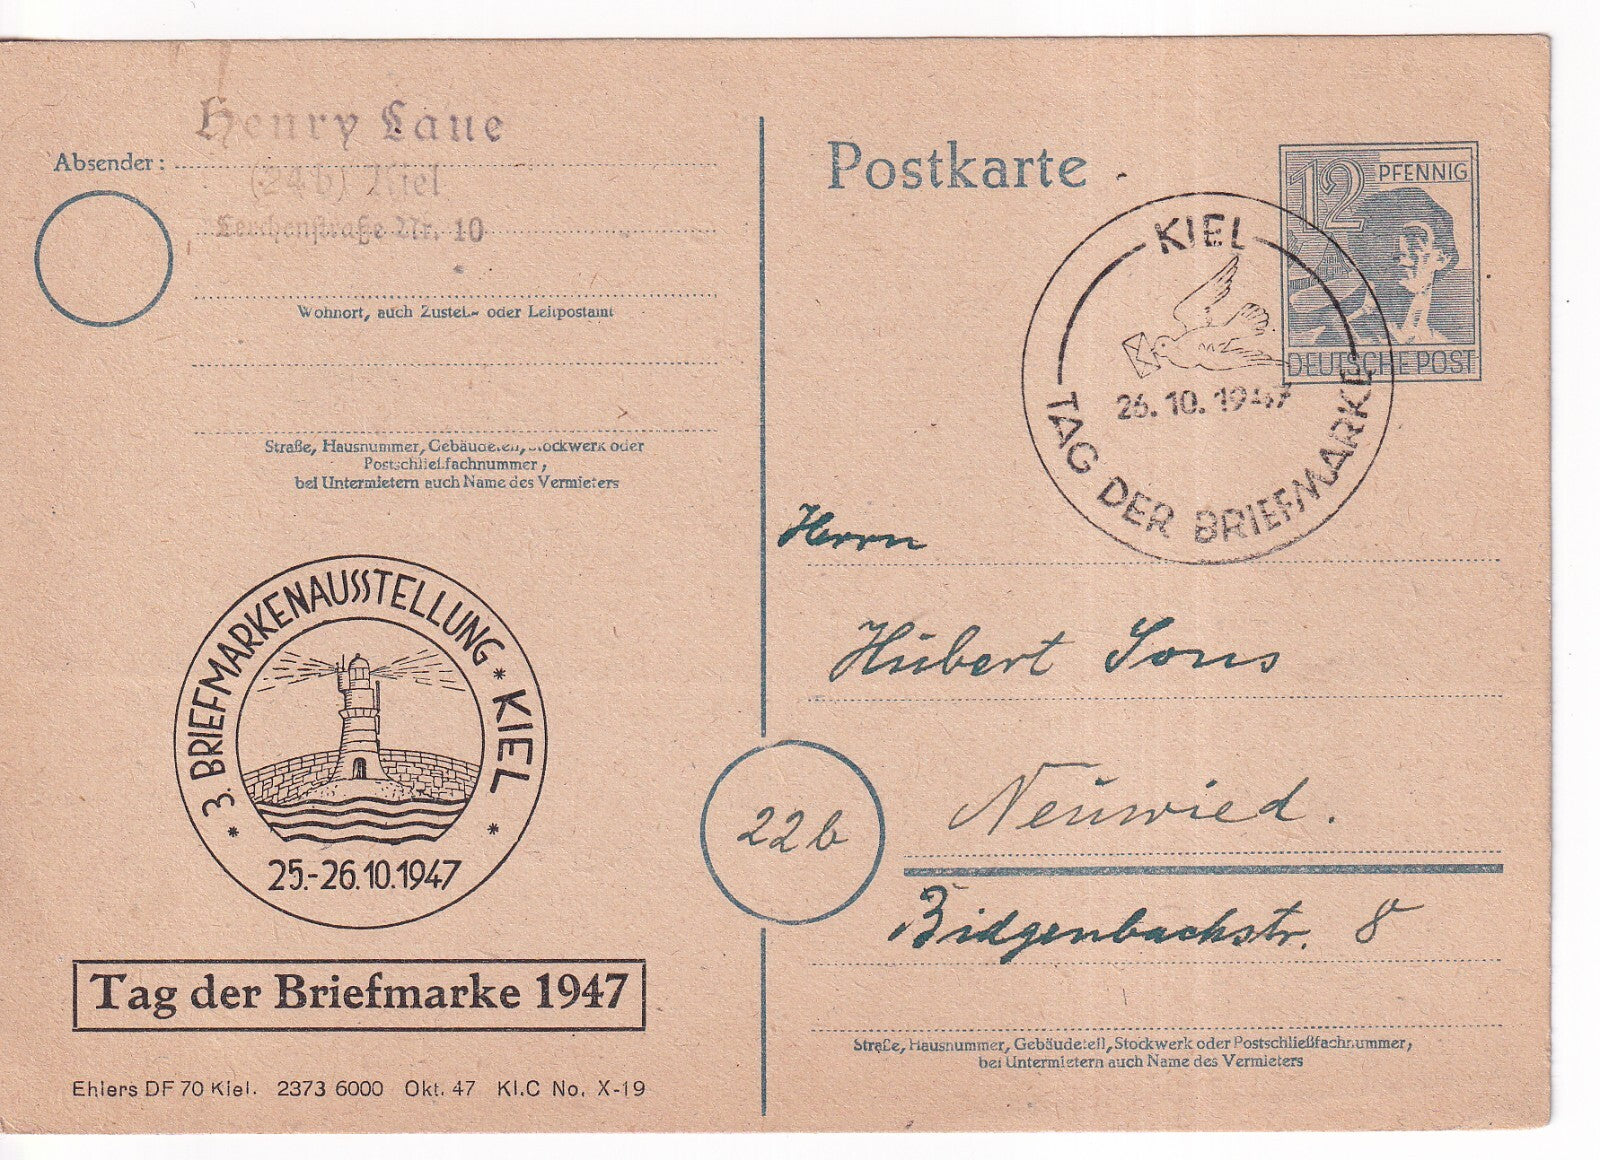 Henry Laue
Absender:
(24b) Kiel
Lerchenstraße Nr. 10
Wohnort, auch Zustell- oder Leitpostamt
Straße, Hausnummer, Gebäudeteil, Stockwerk oder
Postschließfachnummer,
bei Untermietern auch Name des Vermieters
* 3. BRIEFMARKENAUSSTELLUNG * KIEL *
25.-26.10.1947
Tag der Briefmarke 1947
Ehlers DF 70 Kiel. 2373 6000 Okt. 47 Kl.C No. X-19
Postkarte
12 PFENNIG
DEUTSCHE POST
KIEL
26. 10. 1947
TAG DER BRIEFMARKE
Herrn
Hubert Sons
22b
Neuwied.
Bidgenbachstr. 8
Straße, Hausnummer, Gebäudeteil, Stockwerk oder Postschließfachnummer,
bei Untermietern auch Name des Vermieters